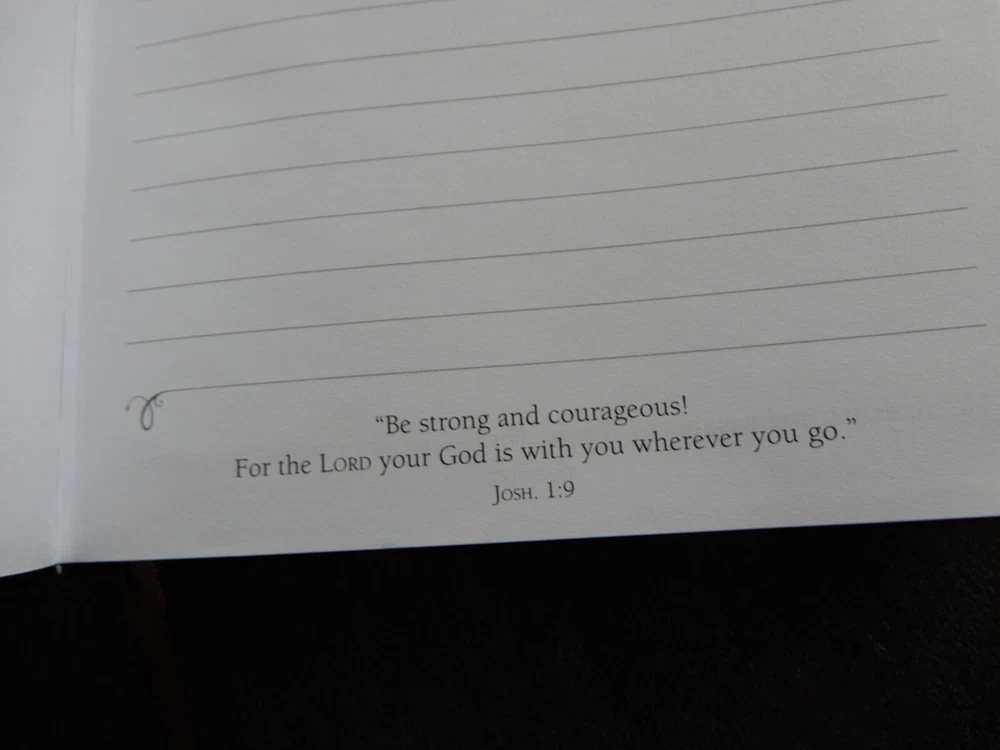 “Be strong and courageous!
For the LORD your God is with you wherever you go.”
JOSH. 1:9